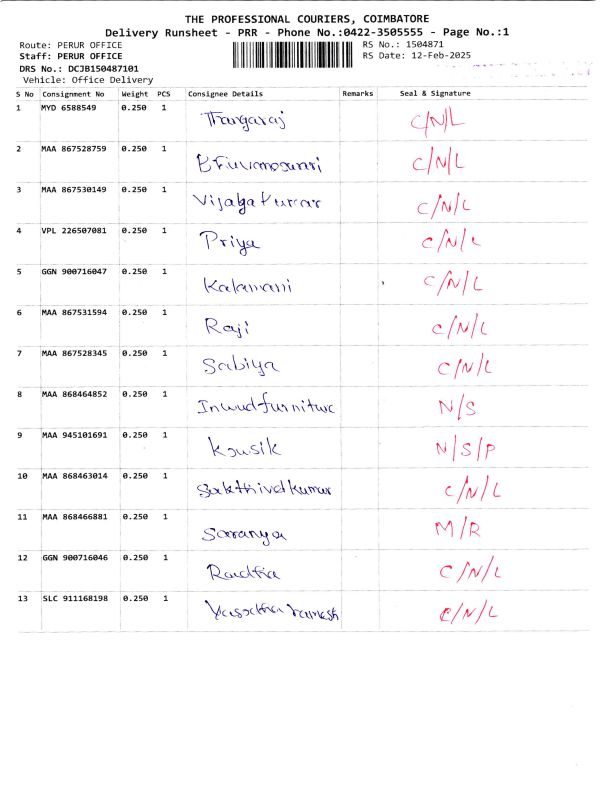 THE PROFESSIONAL COURIERS, COIMBATORE
Delivery Runsheet - PRR - Phone No.:0422-3505555 - Page No.:1
Route: PERUR OFFICE RS No.: 1504871
Staff: PERUR OFFICE RS Date: 12-Feb-2025
DRS No.: DCJB150487101
Vehicle: Office Delivery
S No Consignment No Weight PCS Consignee Details Remarks Seal & Signature
1 MYD 6588549 0.250 1 Thangaraj C/N/L
2 MAA 867528759 0.250 1 C/N/L
3 MAA 867530149 0.250 1 Vijayakumar C/N/L
4 VPL 226507081 0.250 1 Priya C/N/L
5 GGN 900716047 0.250 1 Kalamani C/N/L
6 MAA 867531594 0.250 1 Raji C/N/L
7 MAA 867528345 0.250 1 Sabiya C/N/L
8 MAA 868464852 0.250 1 N/S
9 MAA 945101691 0.250 1 Kousik N/S/P
10 MAA 868463014 0.250 1 Sakthivelkumar C/N/L
11 MAA 868466881 0.250 1 Saranya M/R
12 GGN 900716046 0.250 1 Radha C/N/L
13 SLC 911168198 0.250 1 ramesh C/N/L